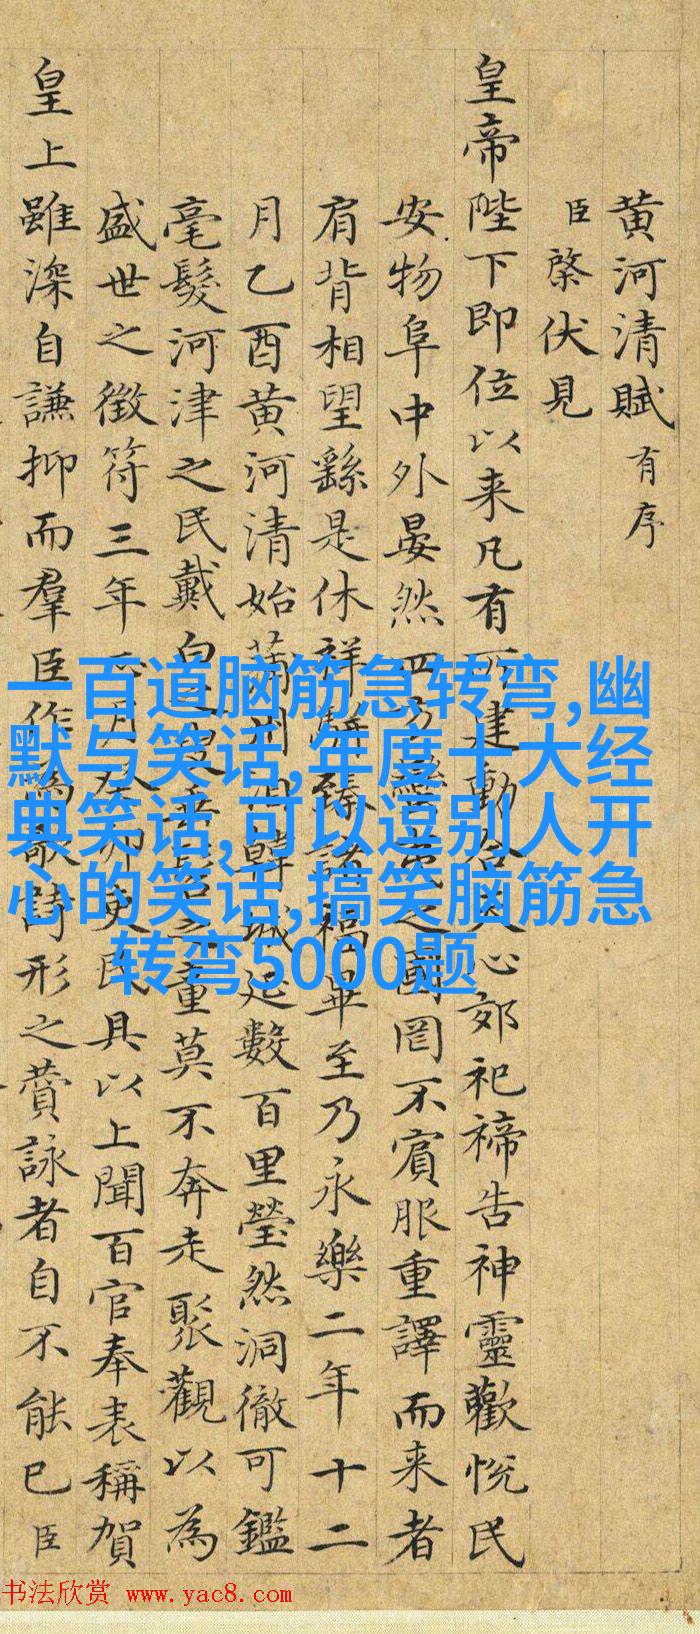 黄河清賦有序
臣棨伏見
皇帝陛下即位以来凡有所建動合天心郊祀禘告神靈歡悦民
安物阜中外晏然四方蠻夷之國罔不賓服重譯而来者
肩背相望繇是休祥駢臻諸福畢至乃永樂二年十二
月乙酉黄河清始蒲州韓城延數百里瑩然洞徹可鑑
毫髮河津之民戴白之叟垂髫之童莫不奔走聚觀以為
盛世之徵符三年正月卯吏民具以上聞百官奉表稱賀
皇上雖深自謙抑而羣臣作為歌詩形之賛詠者自不能已臣
一百道脑筋急转弯,幽
默与笑话,年度十大经
典笑话,可以逗别人开
心的笑话,搞笑脑筋急
转弯5000题
书法欣赏 www.yac8.com